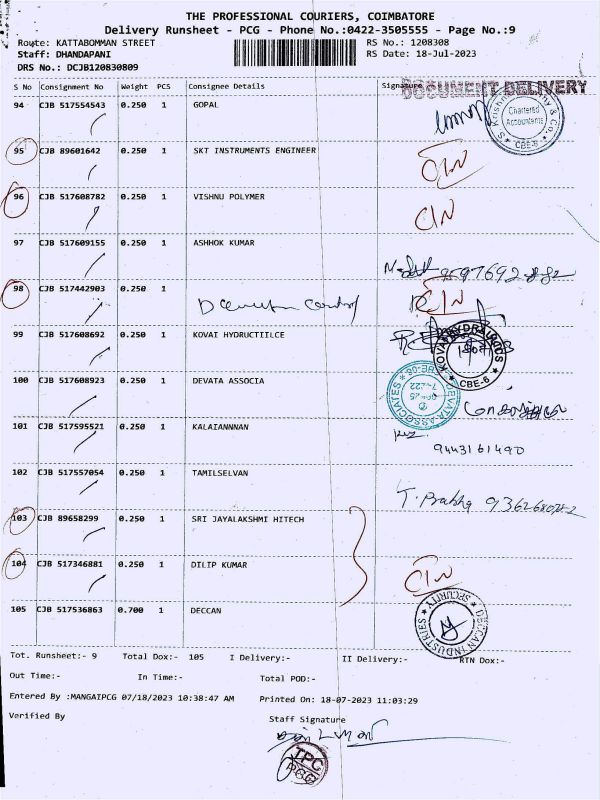 THE PROFESSIONAL COURIERS, COIMBATORE
Delivery Runsheet - PCG - Phone No.:0422-3505555 - Page No.:9
Route: KATTABOMMAN STREET RS No.: 1208308
Staff: DHANDAPANI RS Date: 18-Jul-2023
DRS No.: DCJB120830809
S No Consignment No Weight PCS Consignee Details Signature
DOCUMENT DELIVERY
94 CJB 517554543 0.250 1 GOPAL
Chartered Accountants CBE-6
95 CJB 89601642 0.250 1 SKT INSTRUMENTS ENGINEER
96 CJB 517608782 0.250 1 VISHNU POLYMER
97 CJB 517609155 0.250 1 ASHHOK KUMAR
98 CJB 517442903 0.250 1
99 CJB 517608692 0.250 1 KOVAI HYDRUCTIILCE
CBE-6
100 CJB 517608923 0.250 1 DEVATA ASSOCIA
101 CJB 517595521 0.250 1 KALAIANNNAN
9443161490
102 CJB 517557054 0.250 1 TAMILSELVAN
T. Prabha
103 CJB 89658299 0.250 1 SRI JAYALAKSHMI HITECH
104 CJB 517346881 0.250 1 DILIP KUMAR
105 CJB 517536863 0.700 1 DECCAN
DECCAN INDUSTRIES SECURITY
Tot. Runsheet:- 9 Total Dox:- 105 I Delivery:- II Delivery:- RTN Dox:-
Out Time:- In Time:- Total POD:-
Entered By :MANGAIPCG 07/18/2023 10:38:47 AM Printed On: 18-07-2023 11:03:29
Verified By Staff Signature
TPC
PCG